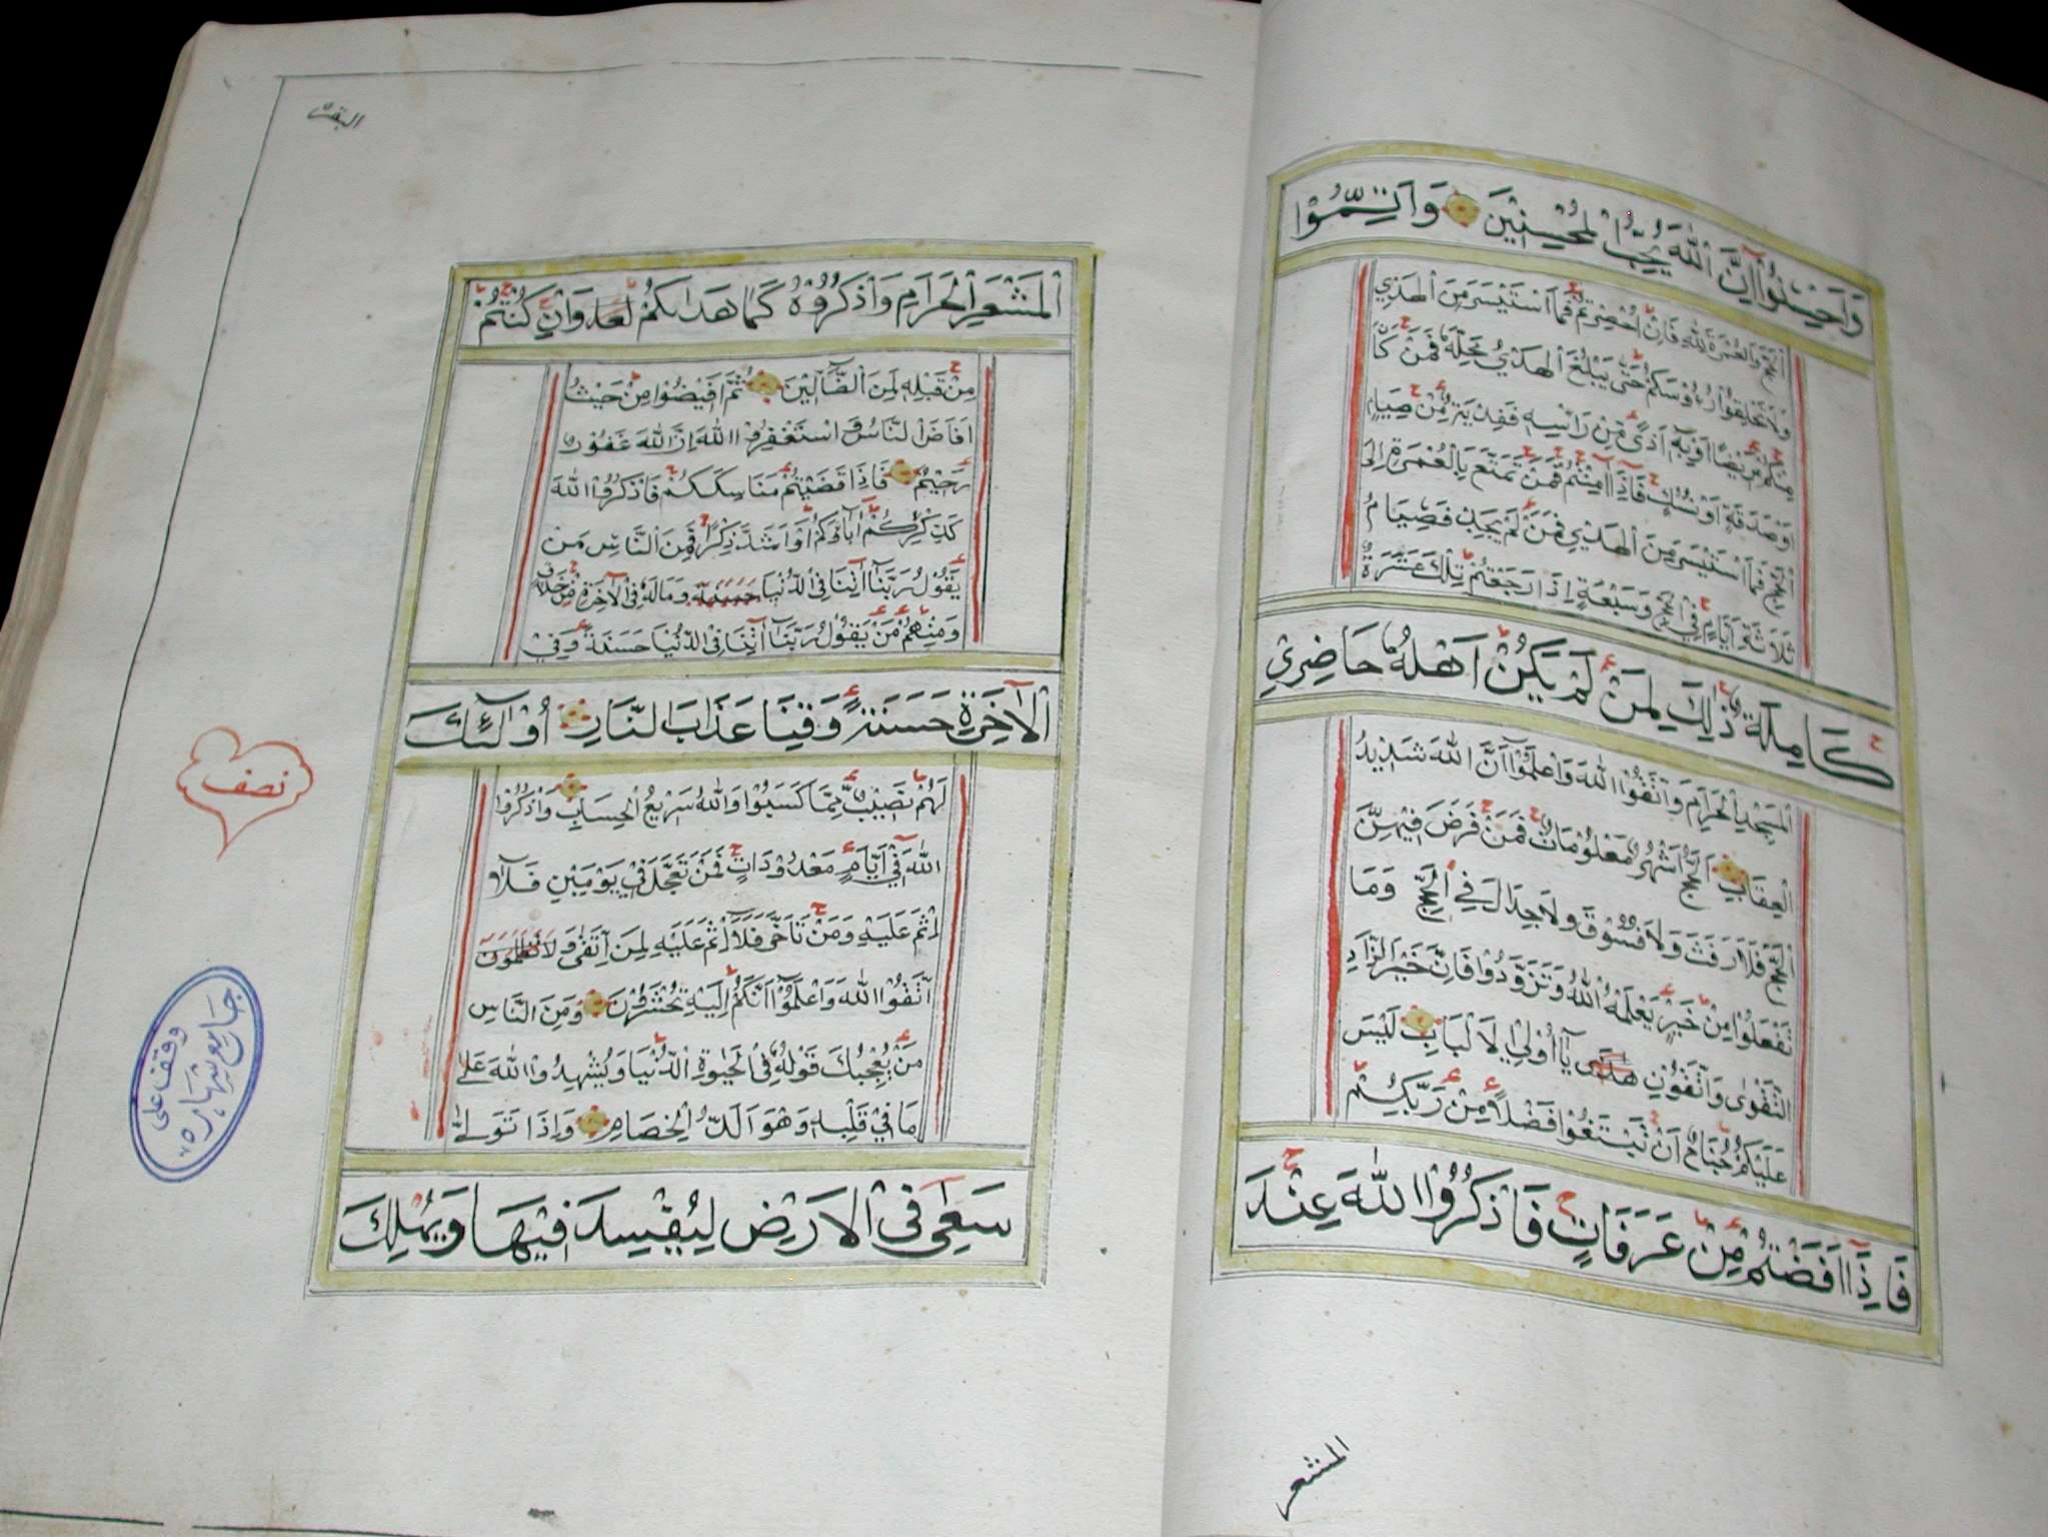 وَاَحْسِنُوْا اِنَّ اللّٰهَ يُحِبُّ الْمُحْسِنِيْنَ وَاَتِمُّوْا
اَلْحَجَّ وَالْعُمْرَةَ لِلّٰهِ فَاِنْ اُحْصِرْتُمْ فَمَا اسْتَيْسَرَ مِنَ الْهَدْيِ
وَلَا تَحْلِقُوْا رُؤُسَكُمْ حَتّٰى يَبْلُغَ الْهَدْيُ مَحِلَّهُ فَمَنْ كَانَ
مِنْكُمْ مَرِيْضًا اَوْ بِهٖ اَذًى مِنْ رَاْسِهٖ فَفِدْيَةٌ مِنْ صِيَامٍ
اَوْ صَدَقَةٍ اَوْ نُسُكٍ فَاِذَا اَمِنْتُمْ فَمَنْ تَمَتَّعَ بِالْعُمْرَةِ اِلَى
الْحَجِّ فَمَا اسْتَيْسَرَ مِنَ الْهَدْيِ فَمَنْ لَمْ يَجِدْ فَصِيَامُ
ثَلَاثَةِ اَيَّامٍ فِي الْحَجِّ وَسَبْعَةٍ اِذَا رَجَعْتُمْ تِلْكَ عَشَرَةٌ
كَامِلَةٌ ذٰلِكَ لِمَنْ لَمْ يَكُنْ اَهْلُهُ حَاضِرِي
الْمَسْجِدِ الْحَرَامِ وَاتَّقُوا اللّٰهَ وَاعْلَمُوْا اَنَّ اللّٰهَ شَدِيْدُ
الْعِقَابِ اَلْحَجُّ اَشْهُرٌ مَعْلُوْمَاتٌ فَمَنْ فَرَضَ فِيْهِنَّ
الْحَجَّ فَلَا رَفَثَ وَلَا فُسُوْقَ وَلَا جِدَالَ فِي الْحَجِّ وَمَا
تَفْعَلُوْا مِنْ خَيْرٍ يَعْلَمْهُ اللّٰهُ وَتَزَوَّدُوْا فَاِنَّ خَيْرَ الزَّادِ
التَّقْوٰى وَاتَّقُوْنِ يَآ اُولِي الْاَلْبَابِ لَيْسَ
عَلَيْكُمْ جُنَاحٌ اَنْ تَبْتَغُوْا فَضْلًا مِنْ رَبِّكُمْ
فَاِذَا اَفَضْتُمْ مِنْ عَرَفَاتٍ فَاذْكُرُوا اللّٰهَ عِنْدَ
المشعر
البقرة
الْمَشْعَرِ الْحَرَامِ وَاذْكُرُوْهُ كَمَا هَدٰىكُمْ وَاِنْ كُنْتُمْ
مِنْ قَبْلِهٖ لَمِنَ الضَّآلِّيْنَ ثُمَّ اَفِيْضُوْا مِنْ حَيْثُ
اَفَاضَ النَّاسُ وَاسْتَغْفِرُوا اللّٰهَ اِنَّ اللّٰهَ غَفُوْرٌ
رَحِيْمٌ فَاِذَا قَضَيْتُمْ مَنَاسِكَكُمْ فَاذْكُرُوا اللّٰهَ
كَذِكْرِكُمْ اٰبَآؤَكُمْ اَوْ اَشَدَّ ذِكْرًا فَمِنَ النَّاسِ مَنْ
يَقُوْلُ رَبَّنَا اٰتِنَا فِي الدُّنْيَا حَسَنَةً وَمَا لَهُ فِي الْاٰخِرَةِ مِنْ خَلَاقٍ
وَمِنْهُمْ مَنْ يَقُوْلُ رَبَّنَا اٰتِنَا فِي الدُّنْيَا حَسَنَةً وَفِي
الْاٰخِرَةِ حَسَنَةً وَقِنَا عَذَابَ النَّارِ اُولٰٓئِكَ
لَهُمْ نَصِيْبٌ مِمَّا كَسَبُوْا وَاللّٰهُ سَرِيْعُ الْحِسَابِ وَاذْكُرُوا
اللّٰهَ فِي اَيَّامٍ مَعْدُوْدَاتٍ فَمَنْ تَعَجَّلَ فِي يَوْمَيْنِ فَلَا
اِثْمَ عَلَيْهِ وَمَنْ تَاَخَّرَ فَلَا اِثْمَ عَلَيْهِ لِمَنِ اتَّقٰى وَ
اتَّقُوا اللّٰهَ وَاعْلَمُوْا اَنَّكُمْ اِلَيْهِ تُحْشَرُوْنَ وَمِنَ النَّاسِ
مَنْ يُعْجِبُكَ قَوْلُهُ فِي الْحَيٰوةِ الدُّنْيَا وَيُشْهِدُ اللّٰهَ عَلٰى
مَا فِي قَلْبِهٖ وَهُوَ اَلَدُّ الْخِصَامِ وَاِذَا تَوَلّٰى
سَعٰى فِي الْاَرْضِ لِيُفْسِدَ فِيْهَا وَيُهْلِكَ
نصف
وقف على